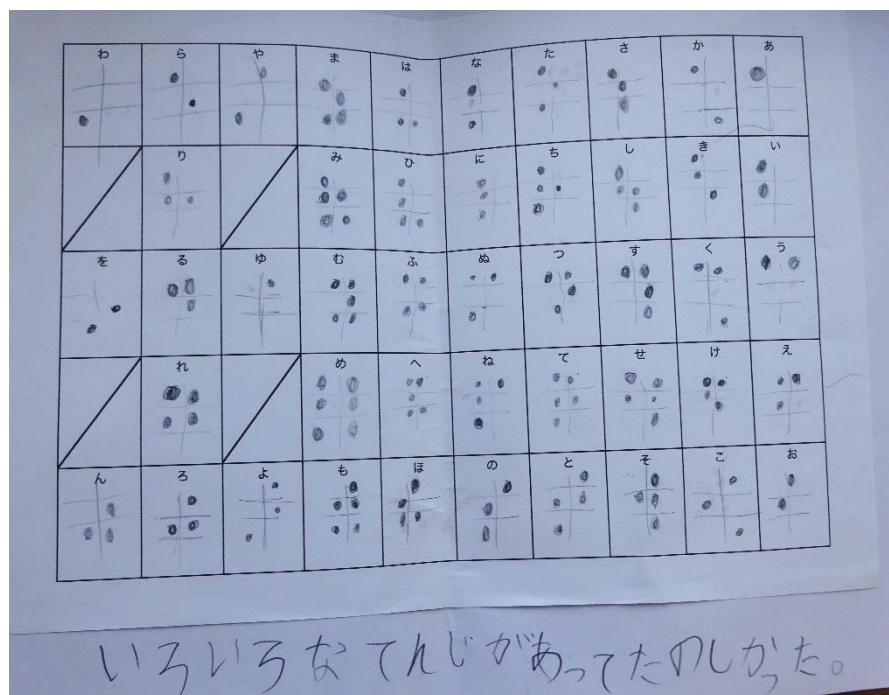 わ ら や ま は な た さ か あ
り み ひ に ち し き い
を る ゆ む ふ ぬ つ す く う
れ め へ ね て せ け え
ん ろ よ も ほ の と そ こ お
いろいろなてんじがあってたのしかった。